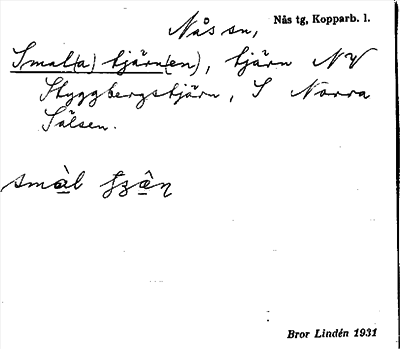 Nås sn, Nås tg, Kopparb. l.
Smal(a) tjärn(en), tjärn NV
Styggbergstjärn, S Norra
Sälsen.
Bror Lindén 1931